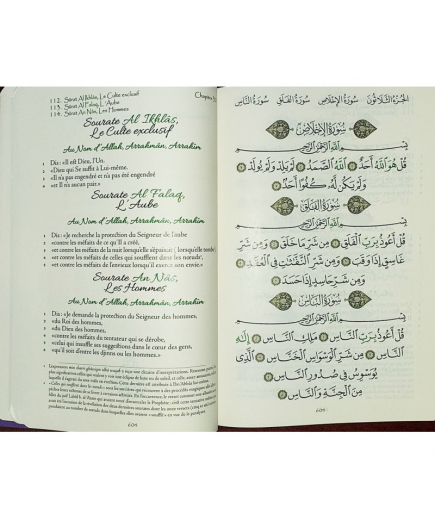 112. Sûrat Al Ikhlâs, Le Culte exclusif
113. Sûrat Al Falaq, L'Aube
114. Sûrat An Nâs, Les Hommes
Chapitre
Sourate Al Ikhlâs,
Le Culte exclusif
Au Nom d'Allah, Arrahmân, Arrahîm
Dis: «Il est Dieu, l'Un.
«Dieu qui Se suffit à Lui-même.
«Il n'a pas engendré et n'a pas été engendré
«et Il n'a aucun pair.»
Sourate Al Falaq,
L'Aube
Au Nom d'Allah, Arrahmân, Arrahîm
Dis: «Je recherche la protection du Seigneur de l'aube
«contre les méfaits de ce qu'Il a créé,
«et contre les méfaits de la nuit lorsqu'elle
«et contre les méfaits de celles qui soufflent dans les nœuds
«et contre les méfaits de l'envieux lorsqu'il exerce son envie.»
Sourate An Nâs,
Les Hommes
Au Nom d'Allah, Arrahmân, Arrahîm
Dis: «Je demande la protection du Seigneur des hommes,
«du Roi des hommes,
«du Dieu des hommes,
«contre les méfaits du tentateur qui se dérobe,
«celui qui insuffle ses suggestions dans le cœur des gens,
«qu'il soit d'entre les djinns ou les hommes.»
604
الجزء الثلاثون سورة الإخلاص سورة الفلق سورة الناس
سورة الإخلاص
بسم الله الرحمن الرحيم
قُلْ هُوَ اللَّهُ أَحَدٌ ١ اللَّهُ الصَّمَدُ ٢ لَمْ يَلِدْ وَلَمْ يُولَدْ ٣
وَلَمْ يَكُن لَّهُ كُفُوًا أَحَدٌ ٤
سورة الفلق
بسم الله الرحمن الرحيم
قُلْ أَعُوذُ بِرَبِّ الْفَلَقِ ١ مِن شَرِّ مَا خَلَقَ ٢ وَمِن شَرِّ
غَاسِقٍ إِذَا وَقَبَ ٣ وَمِن شَرِّ النَّفَّاثَاتِ فِي الْعُقَدِ ٤
وَمِن شَرِّ حَاسِدٍ إِذَا حَسَدَ ٥
سورة الناس
بسم الله الرحمن الرحيم
قُلْ أَعُوذُ بِرَبِّ النَّاسِ ١ مَلِكِ النَّاسِ ٢ إِلَٰهِ
النَّاسِ ٣ مِن شَرِّ الْوَسْوَاسِ الْخَنَّاسِ ٤ الَّذِي
يُوَسْوِسُ فِي صُدُورِ النَّاسِ ٥
مِنَ الْجِنَّةِ وَالنَّاسِ ٦
604